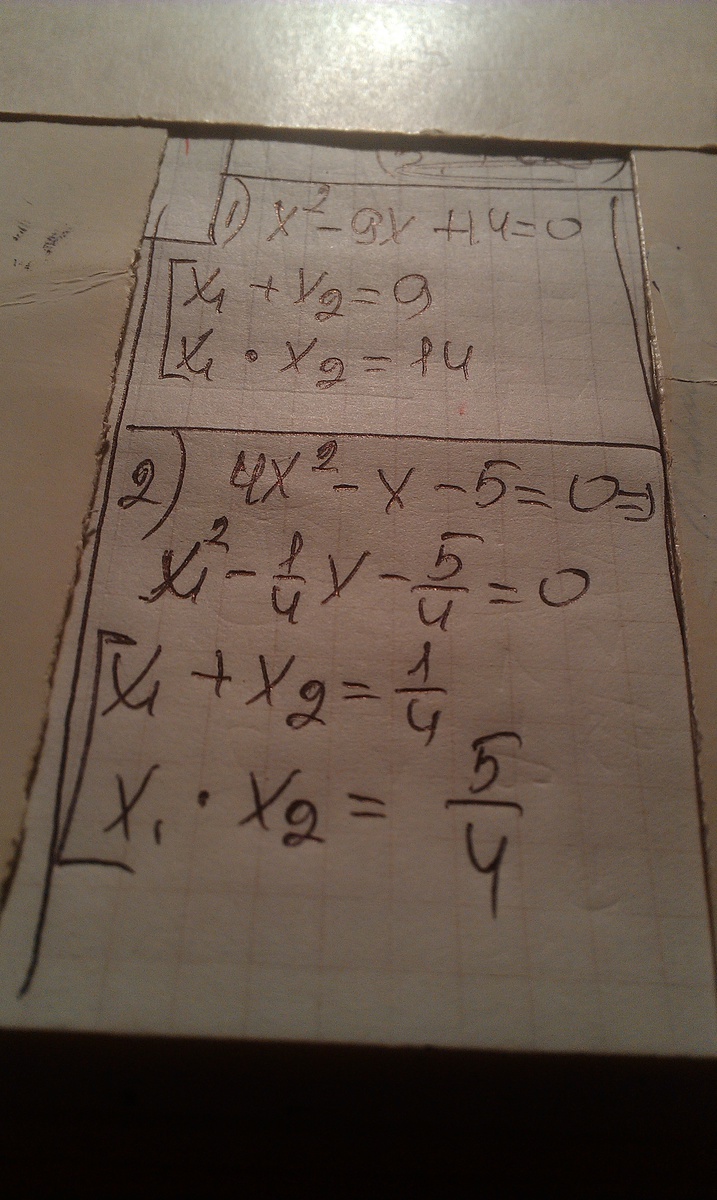 1) x² - 9x + 14 = 0
x₁ + x₂ = 9
x₁ · x₂ = 14
2) 4x² - x - 5 = 0 ⇒
x₁² - 1/4 x - 5/4 = 0
x₁ + x₂ = 1/4
x₁ · x₂ = 5/4